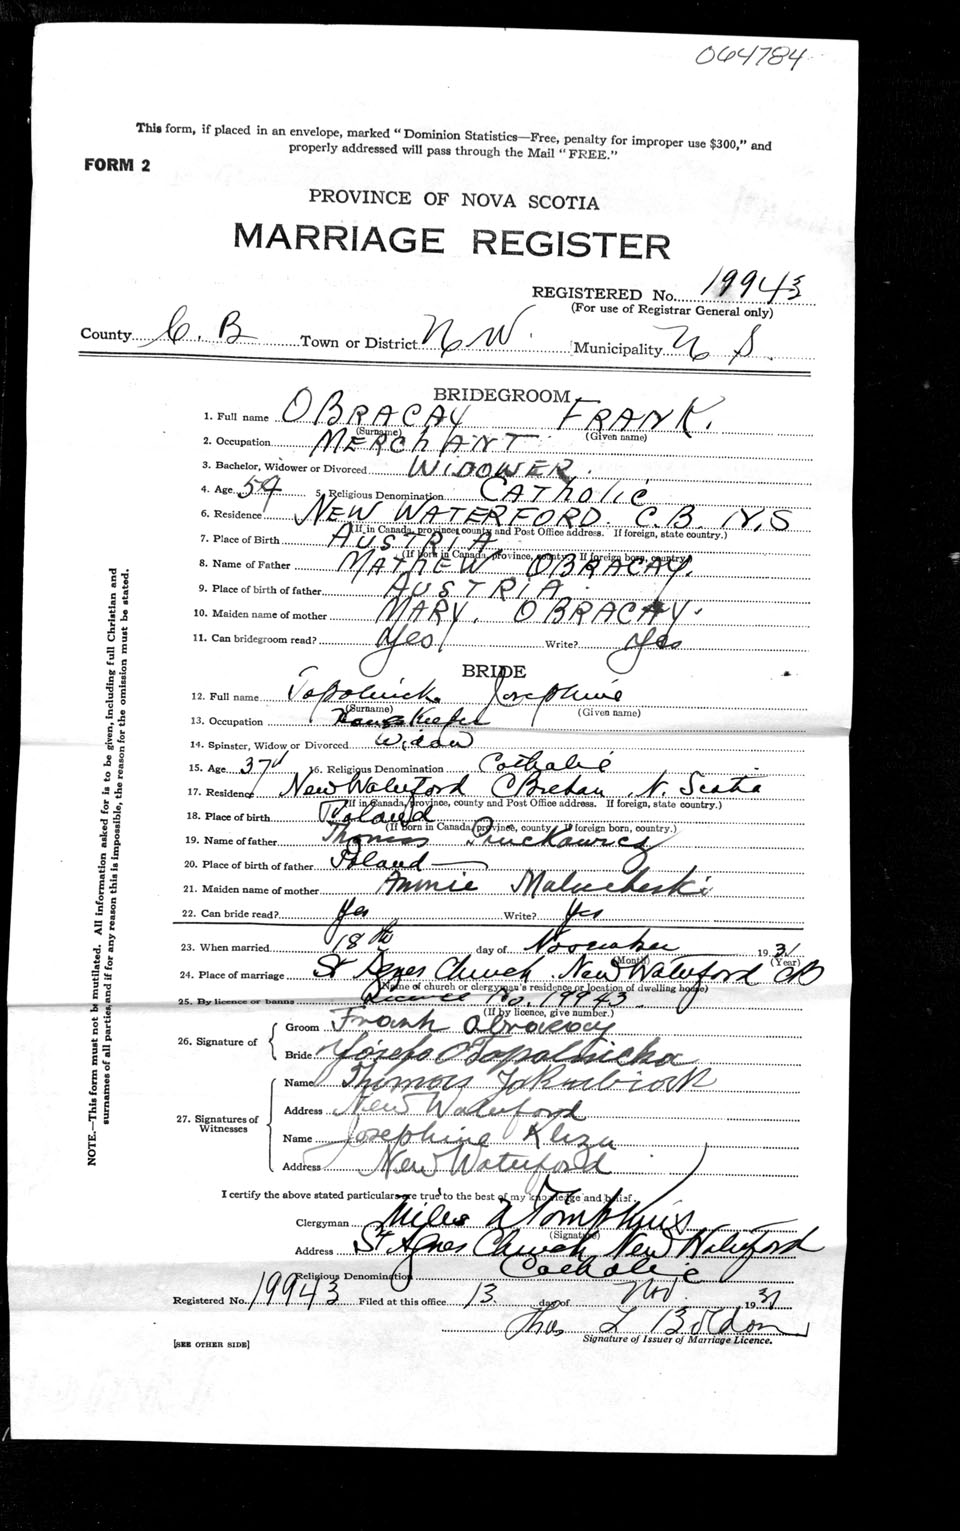 064784
This form, if placed in an envelope, marked "Dominion Statistics—Free, penalty for improper use $300," and
properly addressed will pass through the Mail "FREE."
FORM 2
PROVINCE OF NOVA SCOTIA
MARRIAGE REGISTER
REGISTERED No. 19943
(For use of Registrar General only)
County C. B Town or District N W. Municipality N S.
BRIDEGROOM
1. Full name OBRACAY FRANK.
(Surname) (Given name)
2. Occupation MERCHANT
3. Bachelor, Widower or Divorced WIDOWER.
4. Age 54 5. Religious Denomination CATHOLIC
6. Residence NEW WATERFORD. C.B. N.S
(If in Canada, province, county and Post Office address. If foreign, state country.)
7. Place of Birth AUSTRIA
(If Born in Canada, province, county. If foreign born, country)
8. Name of Father MATHEW OBRACAY.
9. Place of birth of father AUSTRIA.
10. Maiden name of mother MARY. OBRACAY.
11. Can bridegroom read? Yes Write? Yes
BRIDE
12. Full name Topolnicka Josephine
(Surname) (Given name)
13. Occupation House Keeper
14. Spinster, Widow or Divorced Widow
15. Age 37 16. Religious Denomination Catholic
17. Residence New Waterford C Breton N. Scotia
(If in Canada, province, county and Post Office address. If foreign, state country.)
18. Place of birth Poland
(If Born in Canada, province, county. If foreign born, country.)
19. Name of father Thomas
20. Place of birth of father Poland
21. Maiden name of mother Annie
22. Can bride read? Yes Write? Yes
23. When married 18th day of November 1931
(Month) (Year)
24. Place of marriage St Agnes Church. New Waterford CB
(Name of church or clergyman's residence or location of dwelling house)
25. By licence or banns Licence No. 19943
(If by licence, give number.)
26. Signature of
Groom Frank Obracay
Bride Josefa Topolnicka
27. Signatures of
Witnesses
Name Thomas
Address New Waterford
Name Josephine Kliza
Address New Waterford
I certify the above stated particulars are true to the best of my knowledge and belief.
Clergyman Miles N Tompkins
(Signature)
Address St Agnes Church New Waterford
Religious Denomination Catholic
Registered No. 19943 Filed at this office 13 day of Nov. 1931
Thos L
Signature of Issuer of Marriage Licence.
[SEE OTHER SIDE]
NOTE.—This form must not be mutilated. All information asked for is to be given, including full Christian and
surnames of all parties and if for any reason this is impossible, the reason for the omission must be stated.